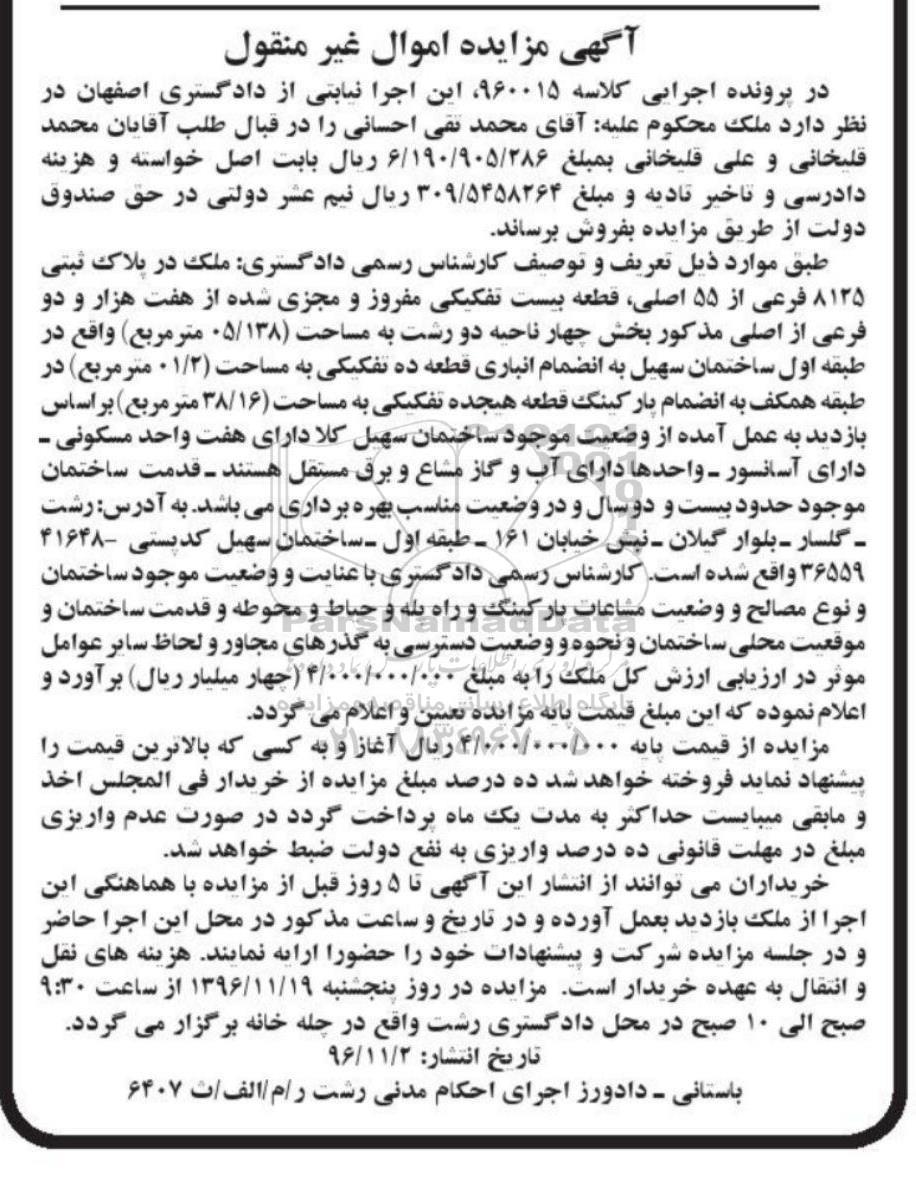 آگهی مزایده اموال غیر منقول
در پرونده اجرایی کلاسه ۹۶۰۰۱۵، این اجرا نیابتی از دادگستری اصفهان در
نظر دارد ملک محکوم علیه: آقای محمد تقی احسانی را در قبال طلب آقایان محمد
قلیخانی و علی قلیخانی بمبلغ ۶/۱۹۰/۹۰۵/۲۸۶ ریال بابت اصل خواسته و هزینه
دادرسی و تاخیر تادیه و مبلغ ۳۰۹/۵۴۵۸۲۶۴ ریال نیم عشر دولتی در حق صندوق
دولت از طریق مزایده بفروش برساند.
طبق موارد ذیل تعریف و توصیف کارشناس رسمی دادگستری: ملک در پلاک ثبتی
۸۱۲۵ فرعی از ۵۵ اصلی، قطعه بیست تفکیکی مفروز و مجزی شده از هفت هزار و دو
فرعی از اصلی مذکور بخش چهار ناحیه دو رشت به مساحت (۰۵/۱۳۸ مترمربع) واقع در
طبقه اول ساختمان سهیل به انضمام انباری قطعه ده تفکیکی به مساحت (۰۱/۲ مترمربع) در
طبقه همکف به انضمام پارکینگ قطعه هیجده تفکیکی به مساحت (۳۸/۱۶ متر مربع) براساس
بازدید به عمل آمده از وضعیت موجود ساختمان سهیل کلا دارای هفت واحد مسکونی ـ
دارای آسانسور ـ واحدها دارای آب و گاز مشاع و برق مستقل هستند ـ قدمت ساختمان
موجود حدود بیست و دو سال و در وضعیت مناسب بهره برداری می باشد. به آدرس: رشت
ـ گلسار ـ بلوار گیلان ـ نبش خیابان ۱۶۱ ـ طبقه اول ـ ساختمان سهیل کدپستی ۴۱۶۴۸-
۳۶۵۵۹ واقع شده است. کارشناس رسمی دادگستری با عنایت و وضعیت موجود ساختمان
و نوع مصالح و وضعیت مشاعات پارکینگ و راه پله و حیاط و محوطه و قدمت ساختمان و
موقعیت محلی ساختمان و نحوه و وضعیت دسترسی به گذرهای مجاور و لحاظ سایر عوامل
موثر در ارزیابی ارزش کل ملک را به مبلغ ۴/۰۰۰/۰۰۰/۰۰۰ (چهار میلیار ریال) برآورد و
اعلام نموده که این مبلغ قیمت پایه مزایده تعیین و اعلام می گردد.
مزایده از قیمت پایه ۴/۰۰۰/۰۰۰/۰۰۰ ریال آغاز و به کسی که بالاترین قیمت را
پیشنهاد نماید فروخته خواهد شد ده درصد مبلغ مزایده از خریدار فی المجلس اخذ
و مابقی میبایست حداکثر به مدت یک ماه پرداخت گردد در صورت عدم واریزی
مبلغ در مهلت قانونی ده درصد واریزی به نفع دولت ضبط خواهد شد.
خریداران می توانند از انتشار این آگهی تا ۵ روز قبل از مزایده با هماهنگی این
اجرا از ملک بازدید بعمل آورده و در تاریخ و ساعت مذکور در محل این اجرا حاضر
و در جلسه مزایده شرکت و پیشنهادات خود را حضورا ارایه نمایند. هزینه های نقل
و انتقال به عهده خریدار است. مزایده در روز پنجشنبه ۱۳۹۶/۱۱/۱۹ از ساعت ۹:۳۰
صبح الی ۱۰ صبح در محل دادگستری رشت واقع در چله خانه برگزار می گردد.
تاریخ انتشار: ۹۶/۱۱/۲
باستانی ـ دادورز اجرای احکام مدنی رشت ر/م/الف/ث ۶۴۰۷
ParsNamadData